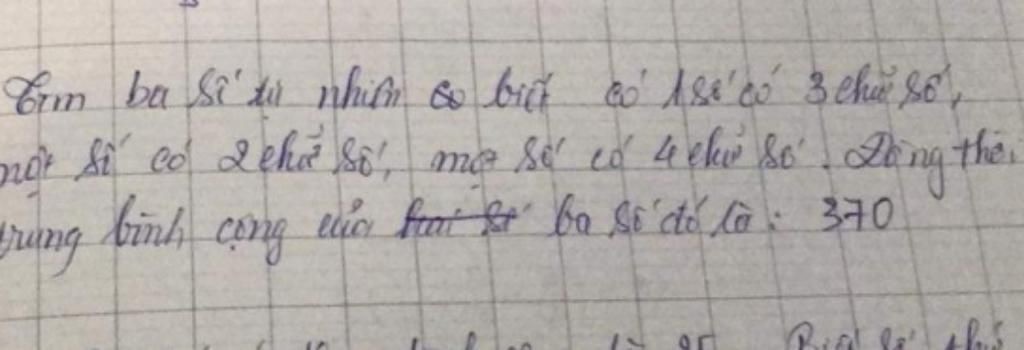 Tìm ba số tự nhiên biết có 1 số có 3 chữ số,
một số có 2 chữ số, một số có 4 chữ số. Đồng thời
trung bình cộng của ba số đó là: 370